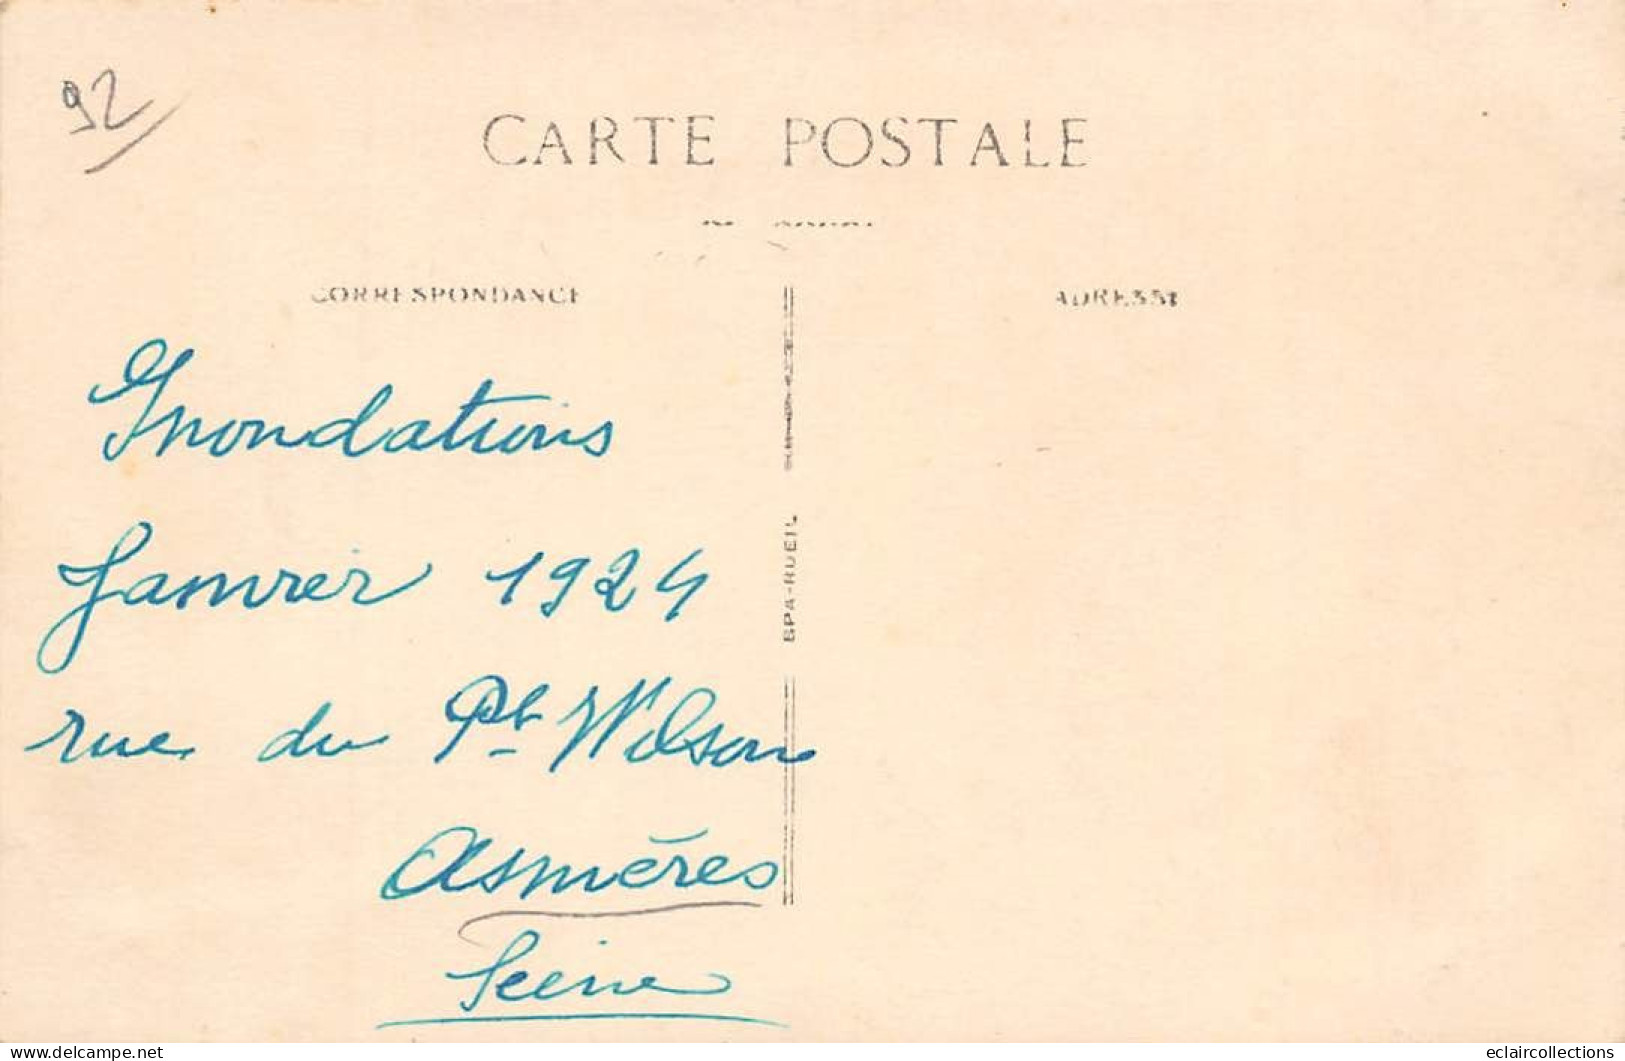 92
CARTE POSTALE
CORRESPONDANCE
ADRESSE
Inondations
Janvier 1924
rue du Pt Wilson
Asnières
Seine
SPA-RUEIL
delcampe.net
eclaircollections